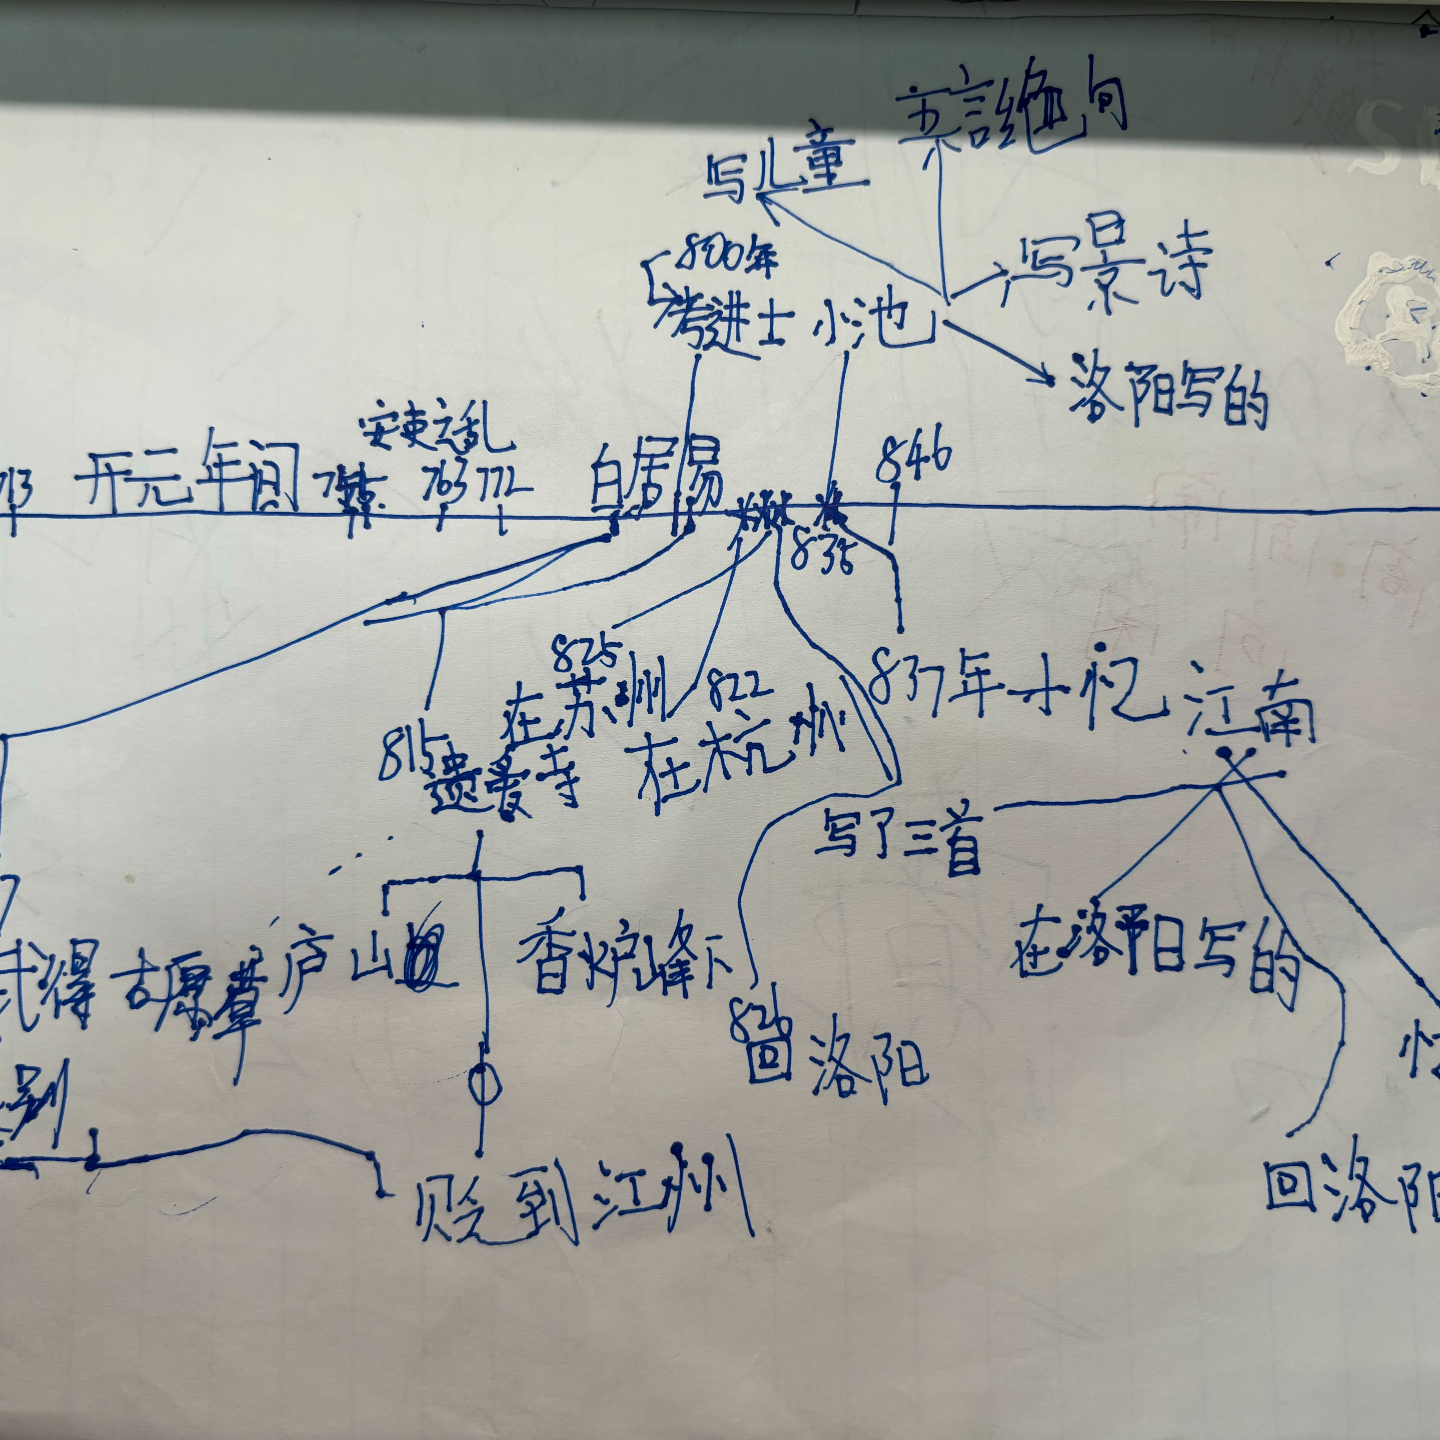 五言绝句
写儿童
800年
写景诗
考进士
小池
洛阳写的
安史之乱
713
开元年间
763
772
白居易
846
835
825
在苏州
822
在杭州
837年
忆江南
815
遗爱寺
写了三首
在洛阳写的
赋得古原草
庐山
香炉峰下
826
回洛阳
别
忆
贬到江州
回洛阳